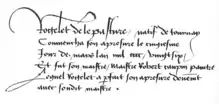 Rogelet de le pasture natif de tournay
Commencha son apresure le cinquiesme
Jour de mars lan mil cccc vingtsix
Et fut son maistre maistre Robert campin paintre
Lequel Rogelet a parfait son apresure deuement
avec sondit maistre